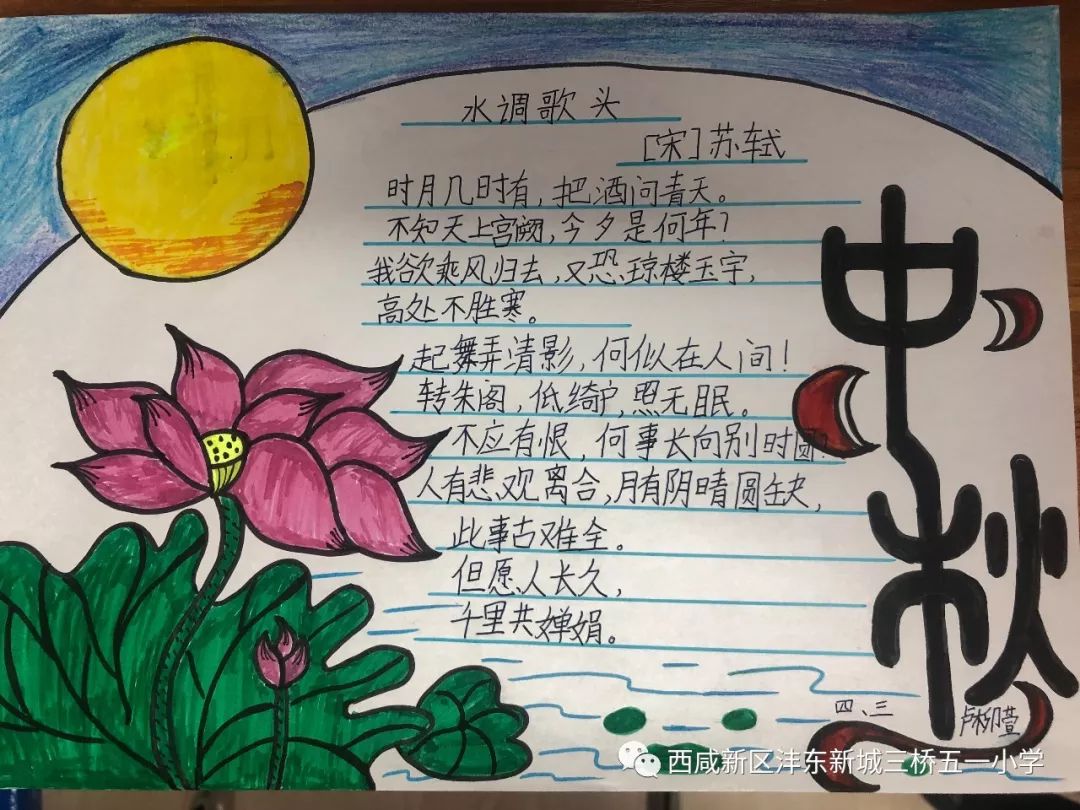 水调歌头
[宋]苏轼
时月几时有，把酒问青天。
不知天上宫阙，今夕是何年？
我欲乘风归去，又恐琼楼玉宇，
高处不胜寒。
起舞弄清影，何似在人间！
转朱阁，低绮户，照无眠。
不应有恨，何事长向别时圆？
人有悲观离合，月有阴晴圆缺，
此事古难全。
但愿人长久，
千里共婵娟。
中秋
四、三
西咸新区沣东新城三桥五一小学